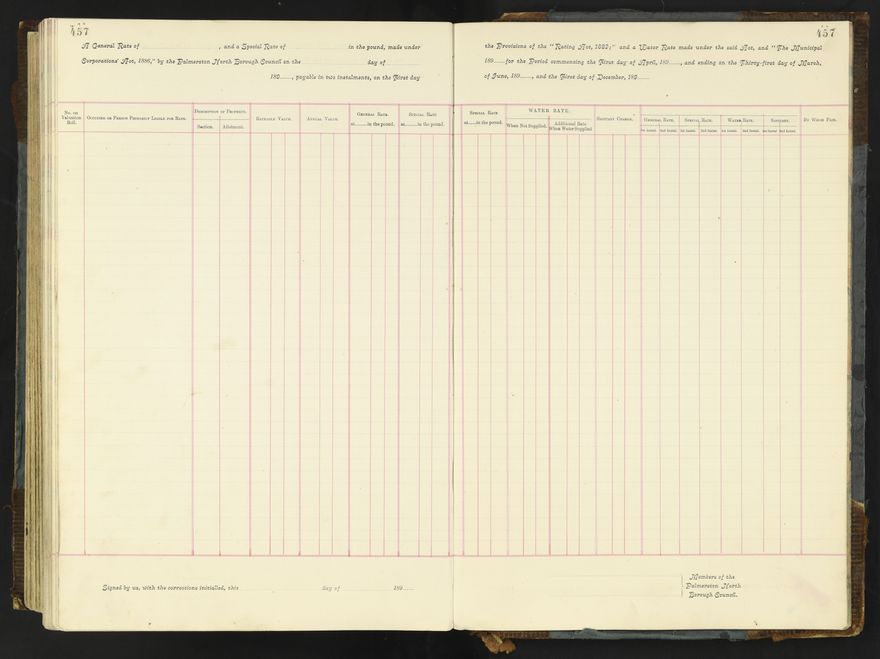 457
457
A General Rate of , and a Special Rate of in the pound, made under
Corporations' Act, 1886," by the Palmerston North Borough Council on the day of
189......, payable in two instalments, on the First day
the Provisions of the "Rating Act, 1882;" and a Water Rate made under the said Act, and "The Municipal
189......for the Period commencing the First day of April, 189......, and ending on the Thirty-first day of March,
of June, 189......, and the First day of December, 189......
No. on Valuation Roll.
Occupier or Person Primarily Liable for Rate.
Description of Property.
Section.
Allotment.
Rateable Value.
Annual Value.
General Rate
at......in the pound.
Special Rate
at......in the pound.
Special Rate
at......in the pound.
WATER RATE.
When Not Supplied.
Additional Rate When Water Supplied
Sanitary Charge.
General Rate.
1st Instal.
2nd Instal.
Special Rate.
1st Instal.
2nd Instal.
Water Rate.
1st Instal.
2nd Instal.
Sanitary.
1st Instal.
2nd Instal.
By Whom Paid.
Signed by us, with the corrections initialled, this day of 189......
Members of the
Palmerston North
Borough Council.